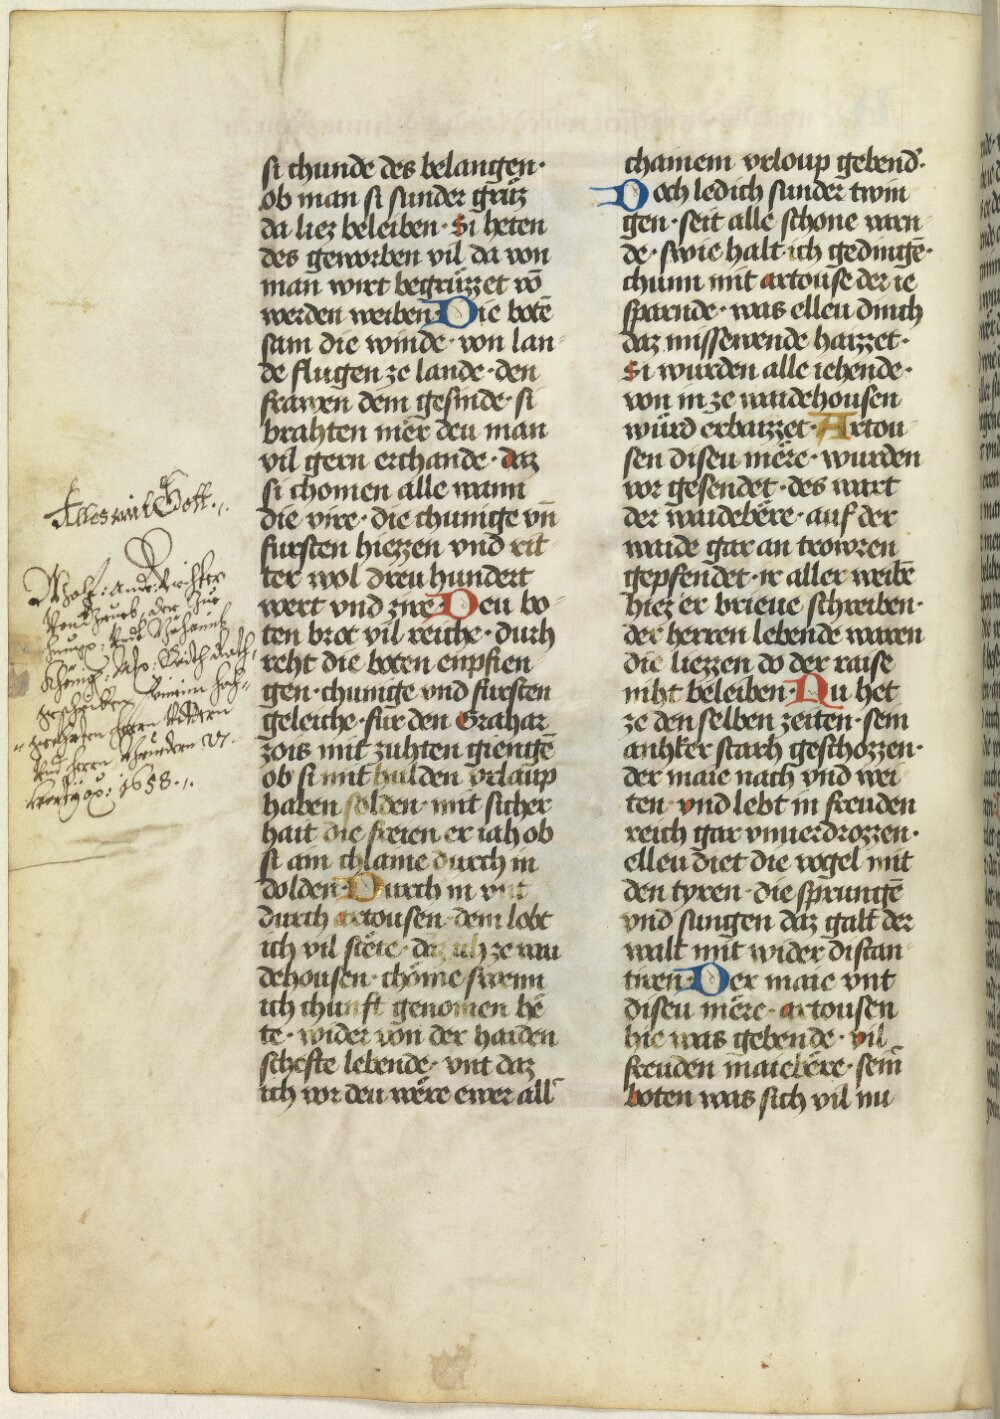 si chunde des belangen·
ob man si sunder grůz
da liez beleiben· Si heten
des geworben vil da von
man wirt begrůzzet vō
werden weiben· Die botē
sam die winde· von lan-
de flugen ze lande· den
frawen dem gesinde· si
brahten mër deu man
vil gern erchande· daz
si chomen alle wann
die vire· die chunige vn̄
fursten hiezzen vnd rit-
ter wol dreu hundert
wert vnd zwe· Deu bo-
ten brot vil reiche· durh
reht die boten enpfien
gen· chunige vnd fursten
geleiche· für den Grahar
zois mit zuhten giengē
ob si mit hulden vrlaup
haben solden· mit sicher
hait die freien er iah ob
si ain chlaine durch in
dolden· Durch in vnt
durch artousen· dem lobt
ich vil stëte· daz ich ze wai
dehousen· chöme swenn
ich chunft genomen hë
te· wider von der haiden
schefte lebende· vnt daz
ich vor deu wëre ewer all
chainem vrloup gebend·
Doch ledich sunder twin
gen· seit alle schone warn
de· swie halt ich gedingē·
chum mit artouse der ie
sparnde· was elleu dinch
daz missewende haizzet·
Si wurden alle iehende·
von in ze waidehousen
würd erbaizzet· Artou
sen diseu mëre· wurden
vor gesendet· des wart
der waidebëre· auf der
waide gar an trowren
gepfendet· ir aller weibē
hiez er brieue schreiben·
der herren lebende waren
die liezzen do der raise
niht beleiben· Nu het
ze den selben zeiten· sein
anhker starh geschozzen·
der maie nach vnd wei
ten· vnd lebt in freuden
reich gar vnuerdrozzen·
elleu diet die vogel mit
den tyren· die sprungē
vnd sungen daz galt der
walt mit wider distan
tiren· Der maie vnt
diseu mëre· artousen
hie was gebende· vil
freuden maiebëre· sein
boten was sich vil nu
Alles mit Gott.
1658.